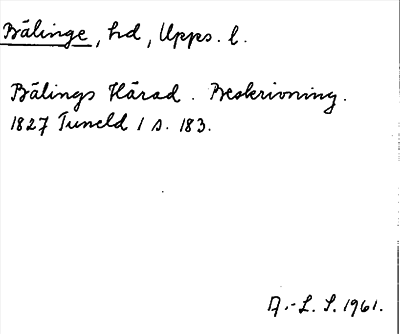 Bälinge, hd, Upps. l.
Bälings Härad. Beskrivning.
1827 Tuneld 1 s. 183.
A.-L. S. 1961.